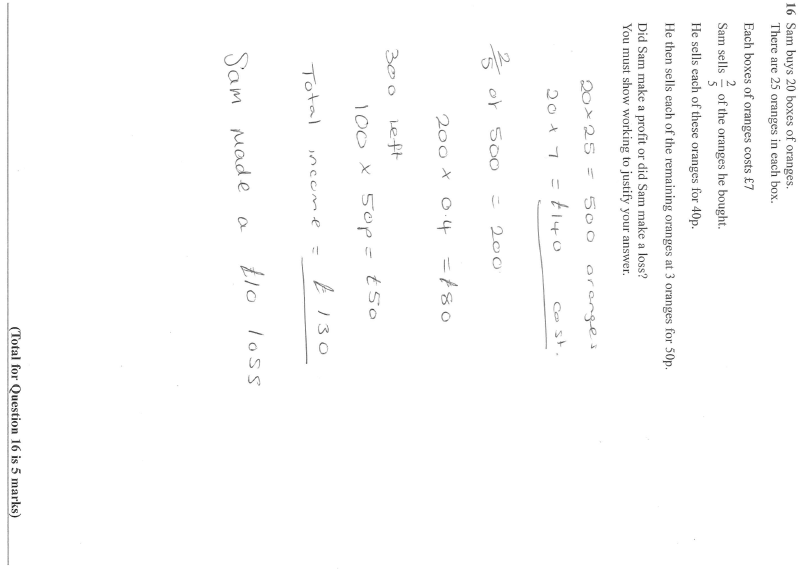 16 Sam buys 20 boxes of oranges.
There are 25 oranges in each box.
Each boxes of oranges costs £7
Sam sells 2/5 of the oranges he bought.
He sells each of these oranges for 40p.
He then sells each of the remaining oranges at 3 oranges for 50p.
Did Sam make a profit or did Sam make a loss?
You must show working to justify your answer.
20 x 25 = 500 oranges
20 x 7 = £140 cost.
2/5 of 500 = 200
200 x 0.4 = £80
300 left
100 x 50p = £50
Total income = £130
Sam made a £10 loss
(Total for Question 16 is 5 marks)